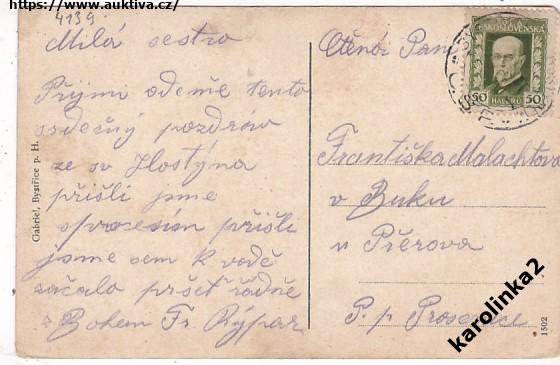 https://www.auktiva.cz/
4139
Milá sestro
Přijmi odemě tento
srdečný pozdrav
ze sv Hostýna
přišli jsme
sprocesím přišli
jsme sem k vodě
začalo pršet řádně
z Bohem Fr. Rýpar
Gabriel, Bystřice p. H.
Ctěná Paní
ČESKOSLOVENSKÁ
50 HALÉŘŮ 50
Františka Malachtová
v Buku
u Přerova
P. p Prosenice
1502
karolinka2